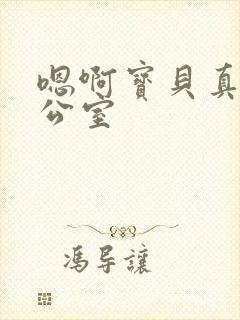 嗯啊寳貝真
公室
馮导讓